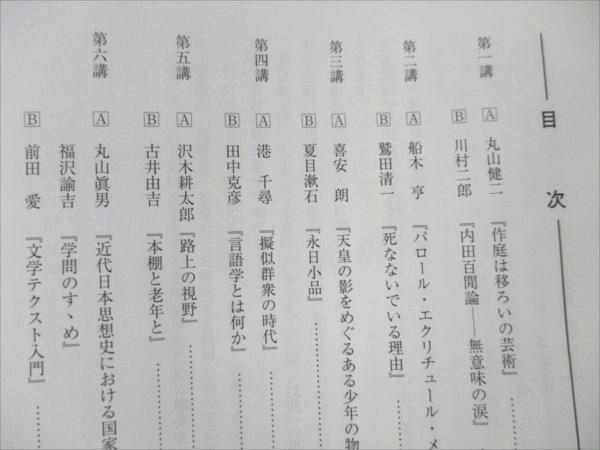 目次
第一講 A 丸山健二 『作庭は移ろいの芸術』
B 川村二郎 『内田百閒論――無意味の涙』
第二講 A 船木 亨 『パロール・エクリチュール・メ
B 鷲田清一 『死なないでいる理由』
第三講 A 喜安 朗 『天皇の影をめぐるある少年の物
B 夏目漱石 『永日小品』
第四講 A 港 千尋 『擬似群衆の時代』
B 田中克彦 『言語学とは何か』
第五講 A 沢木耕太郎 『路上の視野』
B 古井由吉 『本棚と老年と』
第六講 A 丸山眞男 『近代日本思想史における国家
福沢諭吉 『学問のすゝめ』
B 前田 愛 『文学テクスト入門』